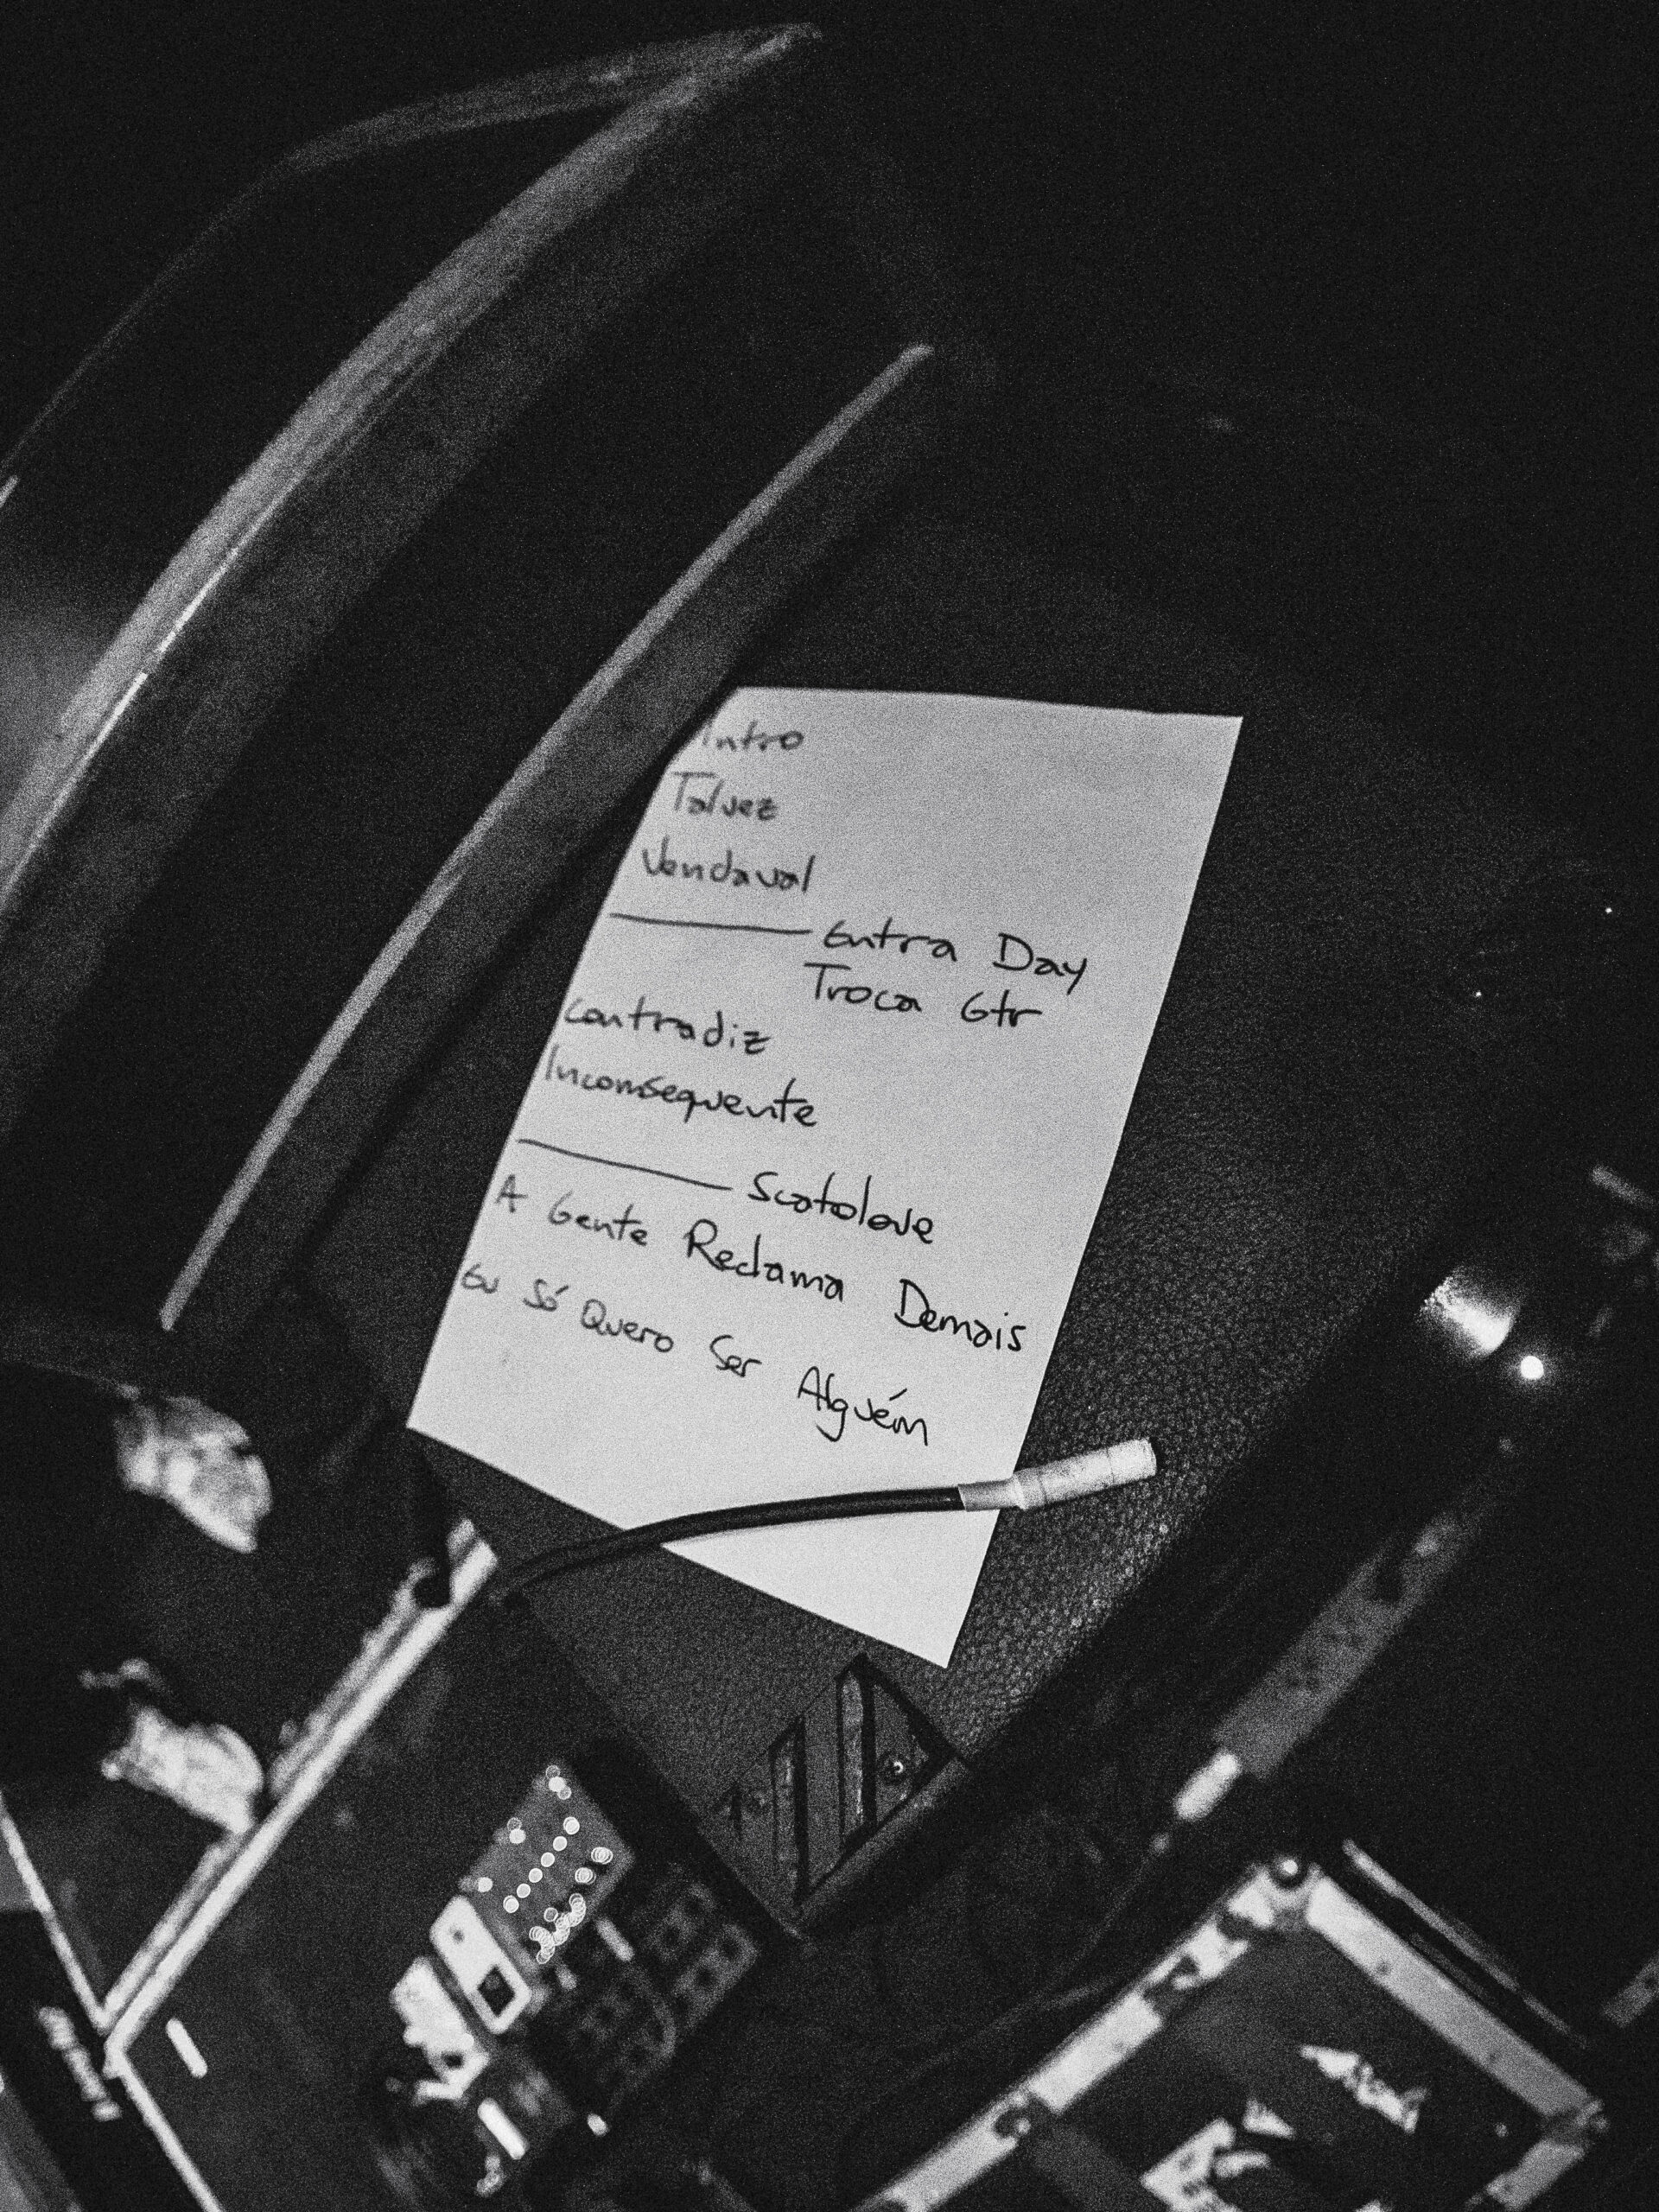 Intro
Talvez
Vendaval
Entra Day
Troca Gtr
Contradiz
Inconsequente
Scatolove
A Gente Reclama Demais
Eu Só Quero Ser Alguém